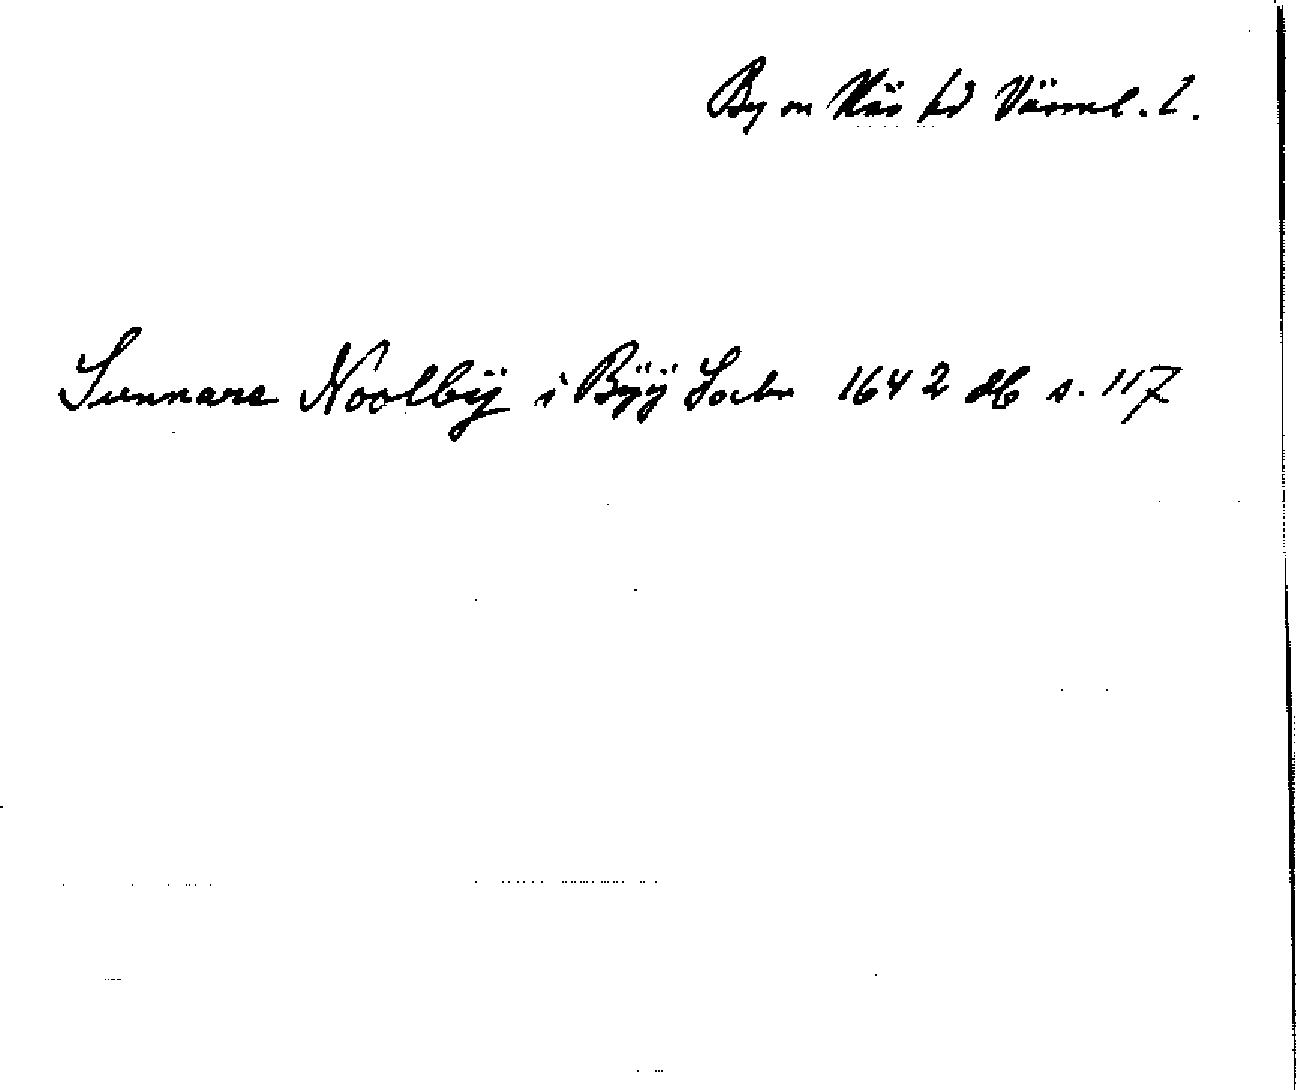 By sn Näs hd Värml. l.
Sunnare Noolbÿ i Bÿÿ Sochn 1642 db s. 117